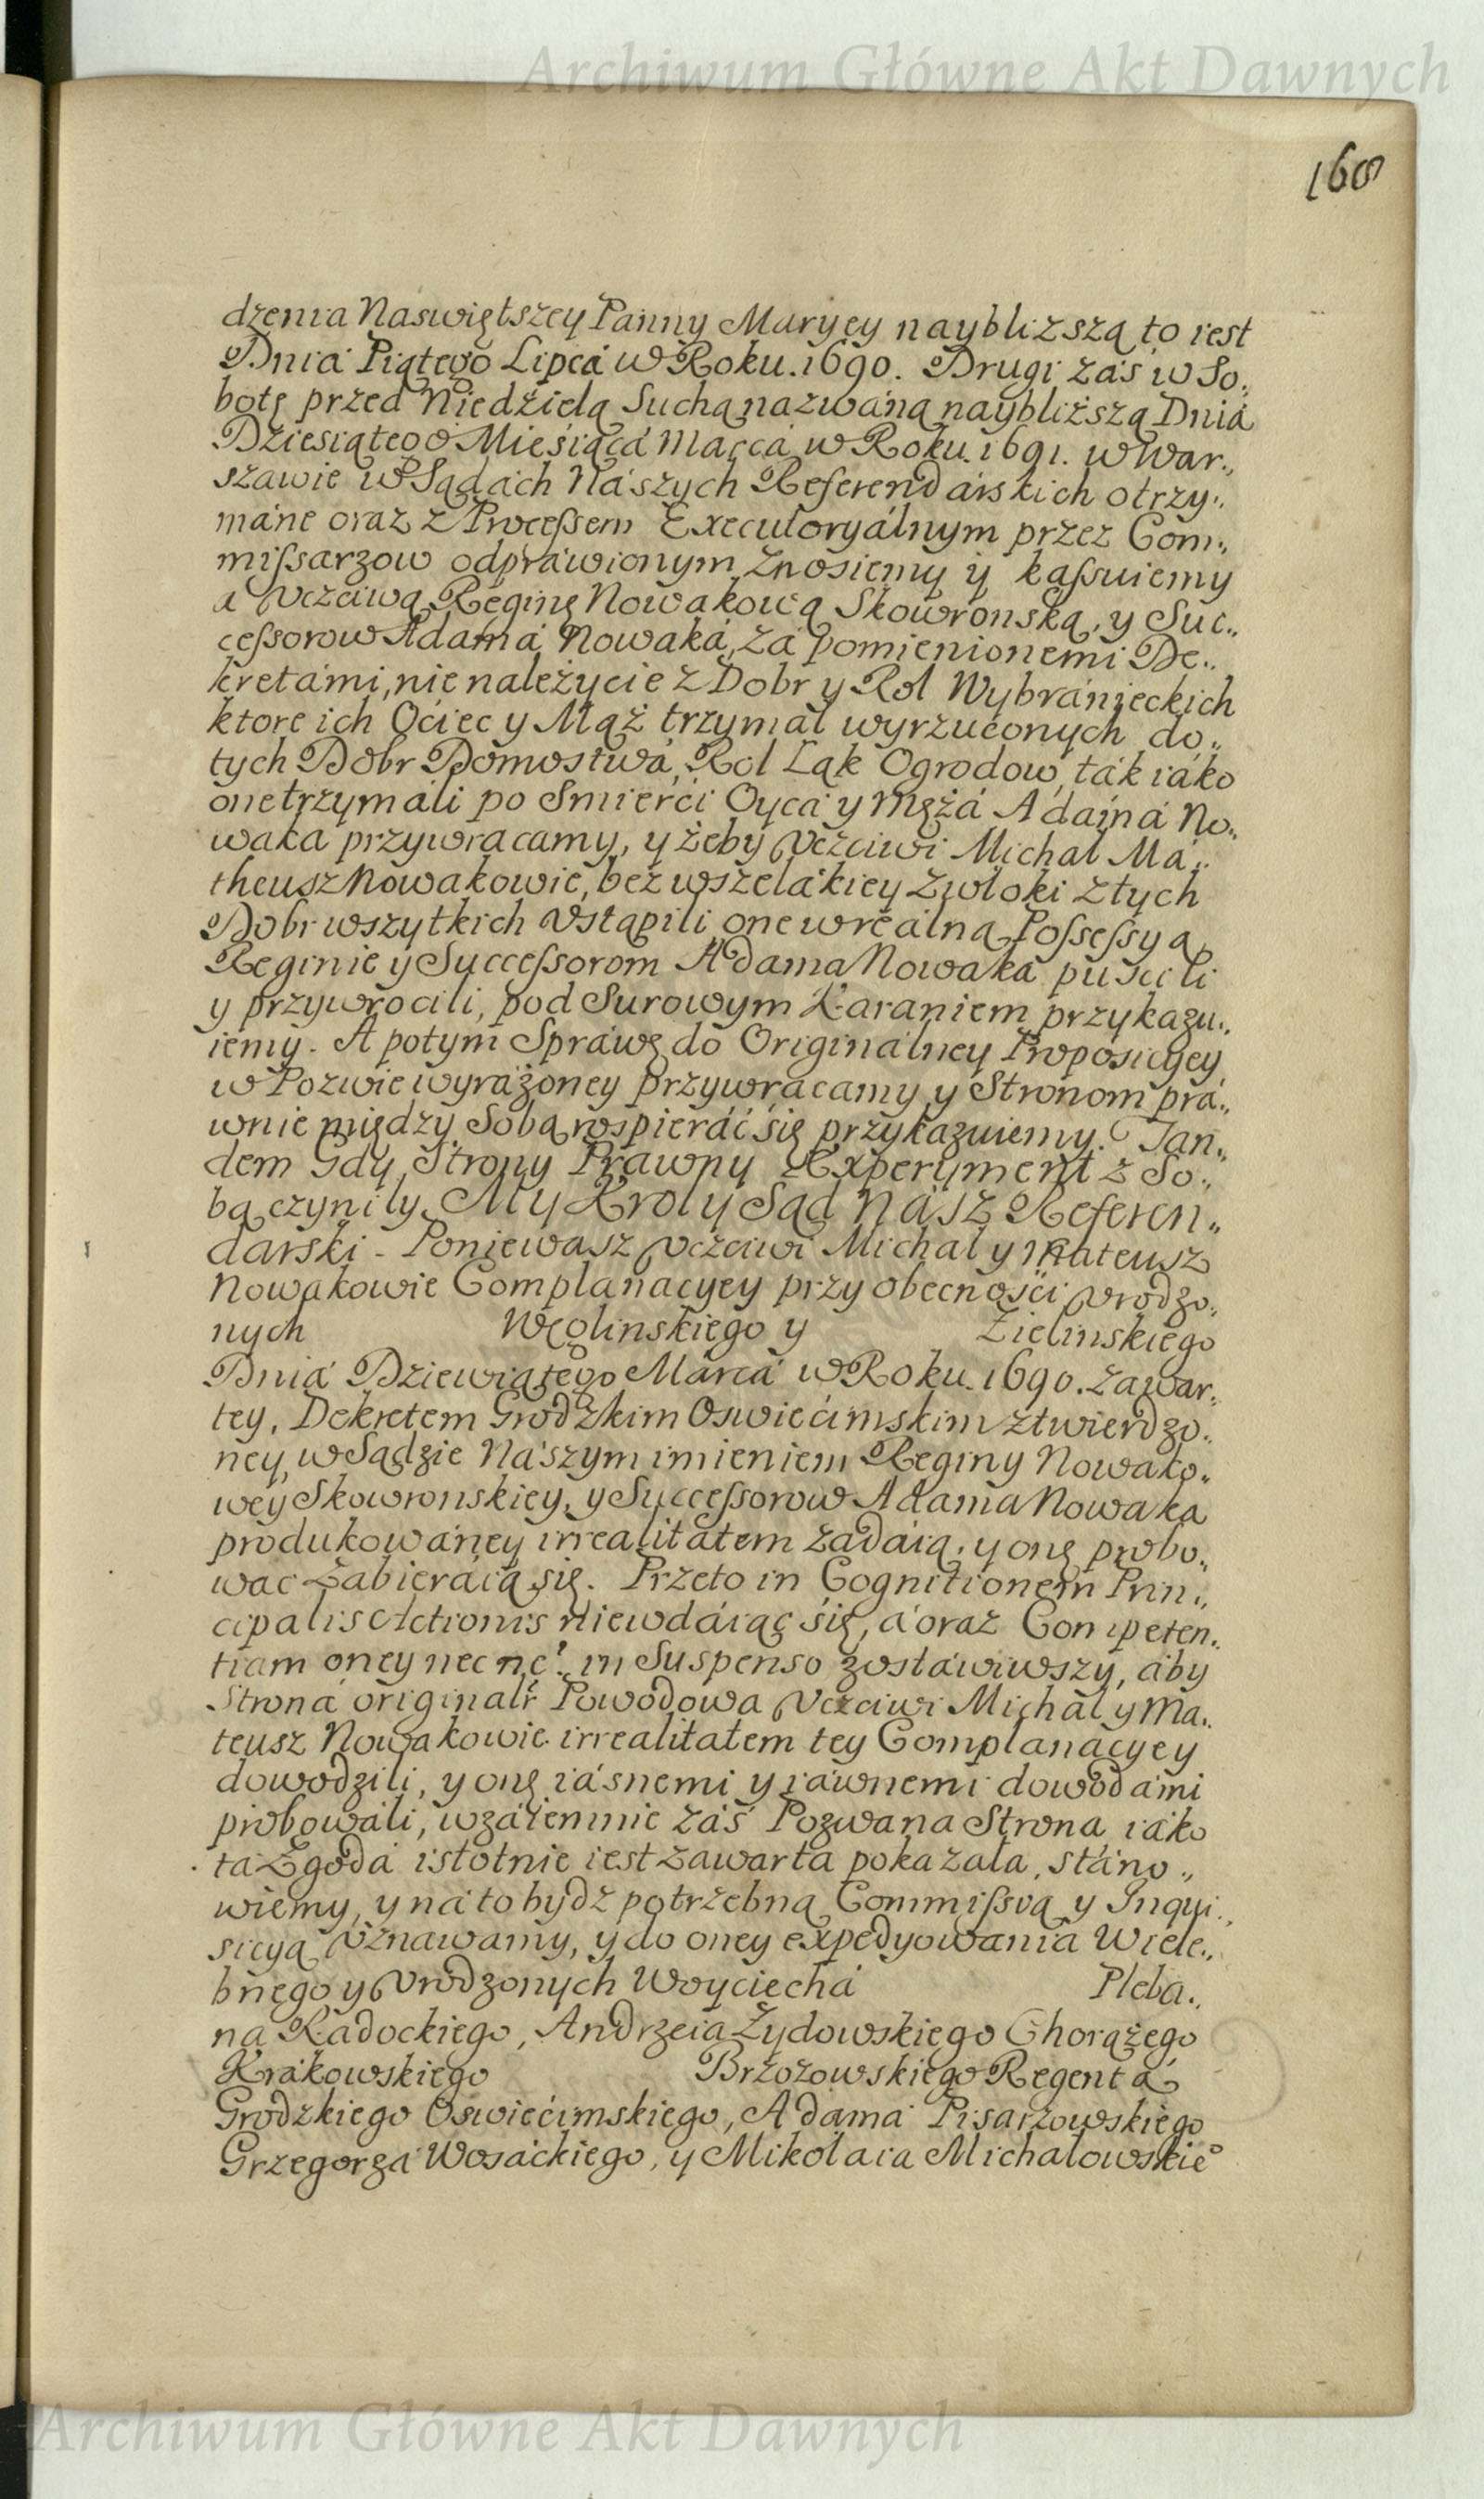 Archiwum Główne Akt Dawnych
168
dzenia Naswiętszey Panny Maryey naybliższą to iest
Dnia Piątego Lipca w Roku. 1690. Drugi zaś w So„
botę przed Niedzielą Suchą nazwaną naybliższą Dnia
Dziesiątego Miesiąca Marca w Roku. 1691. w War„
szawie w Sądach Naszych Referendarskich otrzy„
mane oraz z Processem Executoryalnym przez Com„
missarzow odprawionym znosiemy y kassuiemy
a Vczciwą Reginę Nowakową Skowronską, y Suc„
cessorow Adama Nowaka, za pomienionemi De„
kretami, nie należycie z Dobr y Rol Wybranieckich
ktore ich Ociec y Mąż trzymał wyrzuconych do„
tych Dobr Domostwa, Rol Łąk Ogrodow, tak iako
one trzymali po Smierci Oyca y Męża Adama No„
waka przywracamy, y żeby Vczciwi Michał Ma„
theusz Nowakowie, bez wszelakiey zwłoki z tych
Dobr wszytkich Vstąpili, one w realną Possessyą
Reginie y Successorom Adama Nowaka puscili
y przywrocili, pod Surowym Karaniem przykazu„
iemy. A potym Sprawę do Originalney Propozycyey
w Pozwie wyrażoney przywracamy y Stronom pra„
wnie między Sobą rospierać się przykazuiemy. Tan„
dem Gdy Strony Prawny Experyment z So„
bą czynily. My Krol y Sąd Nasz Referen„
darski. Poniewasz Vczciwi Michał y Mateusz
Nowakowie Complanacyey przy obecności Vrodzo„
nych Węglinskiego y Zielinskiego
Dnia Dziewiątego Marca w Roku. 1690. zawar„
tey, Dekretem Grodzkim Oswiecimskim ztwierdzo„
ney, w Sądzie Naszym imieniem Reginy Nowako„
wey Skowronskiey, y Successorow Adama Nowaka
produkowaney irrealitatem zadaią, y onę probo„
wac zabieraią się. Przeto in Cognitionem Prin„
cipalis Actionis niewdaiąc się, a oraz Competen„
tiam oney nec ne? in Suspenso zostawiwszy, aby
Strona original? Powodowa Vczciwi Michał y Ma„
teusz Nowakowie irrealitatem tey Complanacyey
dowodzili, y onę iasnemi y iawnemi dowodami
probowali, wzaiemnie zaś Pozwana Strona, iako
ta Zgoda istotnie iest zawarta pokazała, stano„
wiemy, y na to bydz potrzebną Commissyą y Inqui„
sicyą Vznawamy, y do oney expedyowania Wiele„
bnego y Vrodzonych Woyciecha Pleba„
na Radockiego, Andrzeia Żydowskiego Chorążego
Krakowskiego Brzozowskiego Regenta
Grodzkiego Oswiećimskiego, Adama Pisarzowskiego
Grzegorza Wosackiego, y Mikołaia Michałowskie°
Archiwum Główne Akt Dawnych